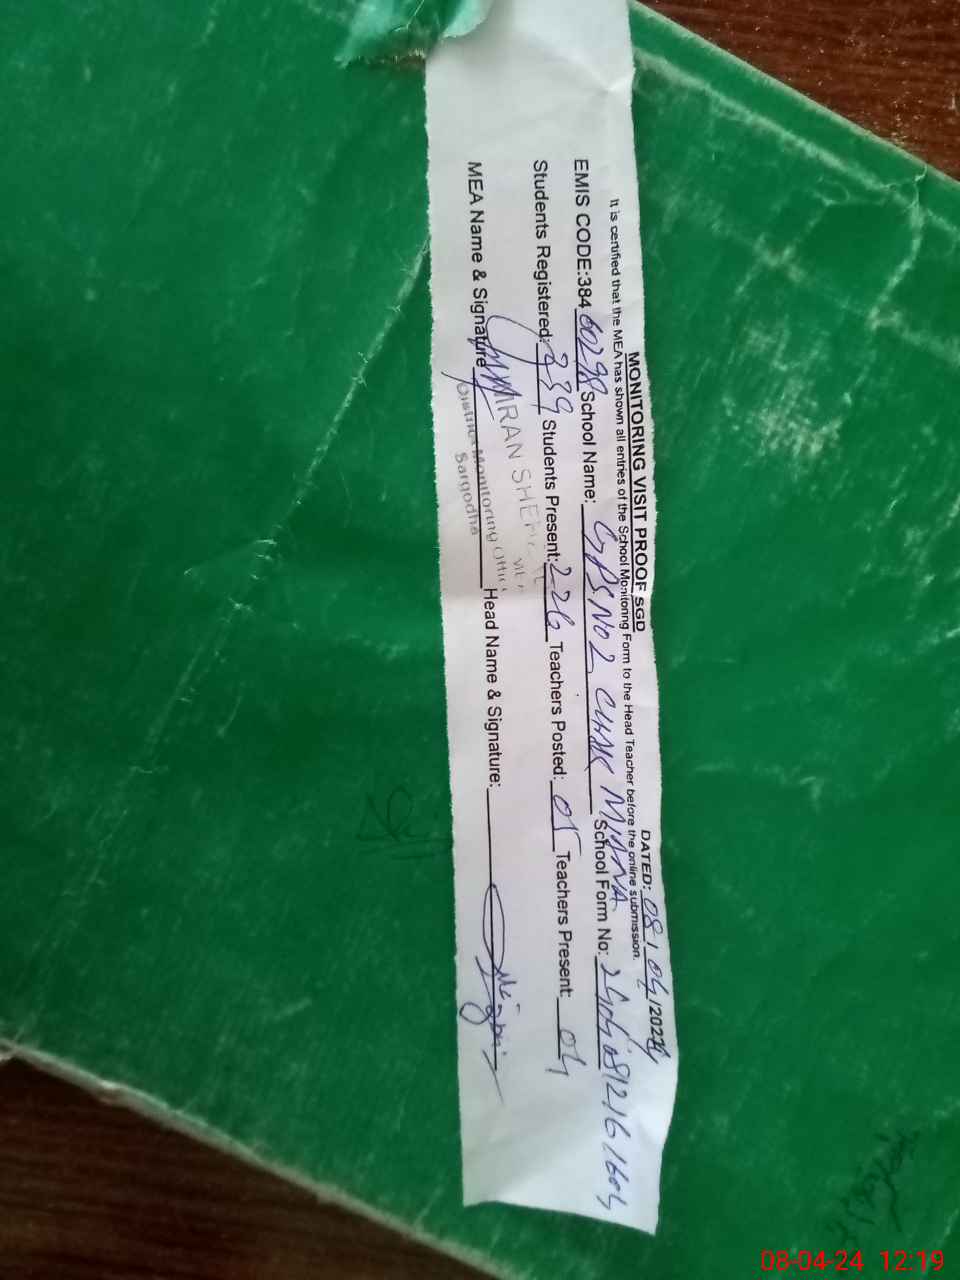 MONITORING VISIT PROOF SGD DATED: 08/04/2024
It is certified that the MEA has shown all entries of the School Monitoring Form to the Head Teacher before the online submission.
EMIS CODE:38460298 School Name: GPS NO 2 CHAK MIANA School Form No:
Students Registered: 239 Students Present: 226 Teachers Posted: 05 Teachers Present: 04
MEA Name & Signature Head Name & Signature:
IMRAN
District Monitoring Office
Sargodha
08-04-24 12:19